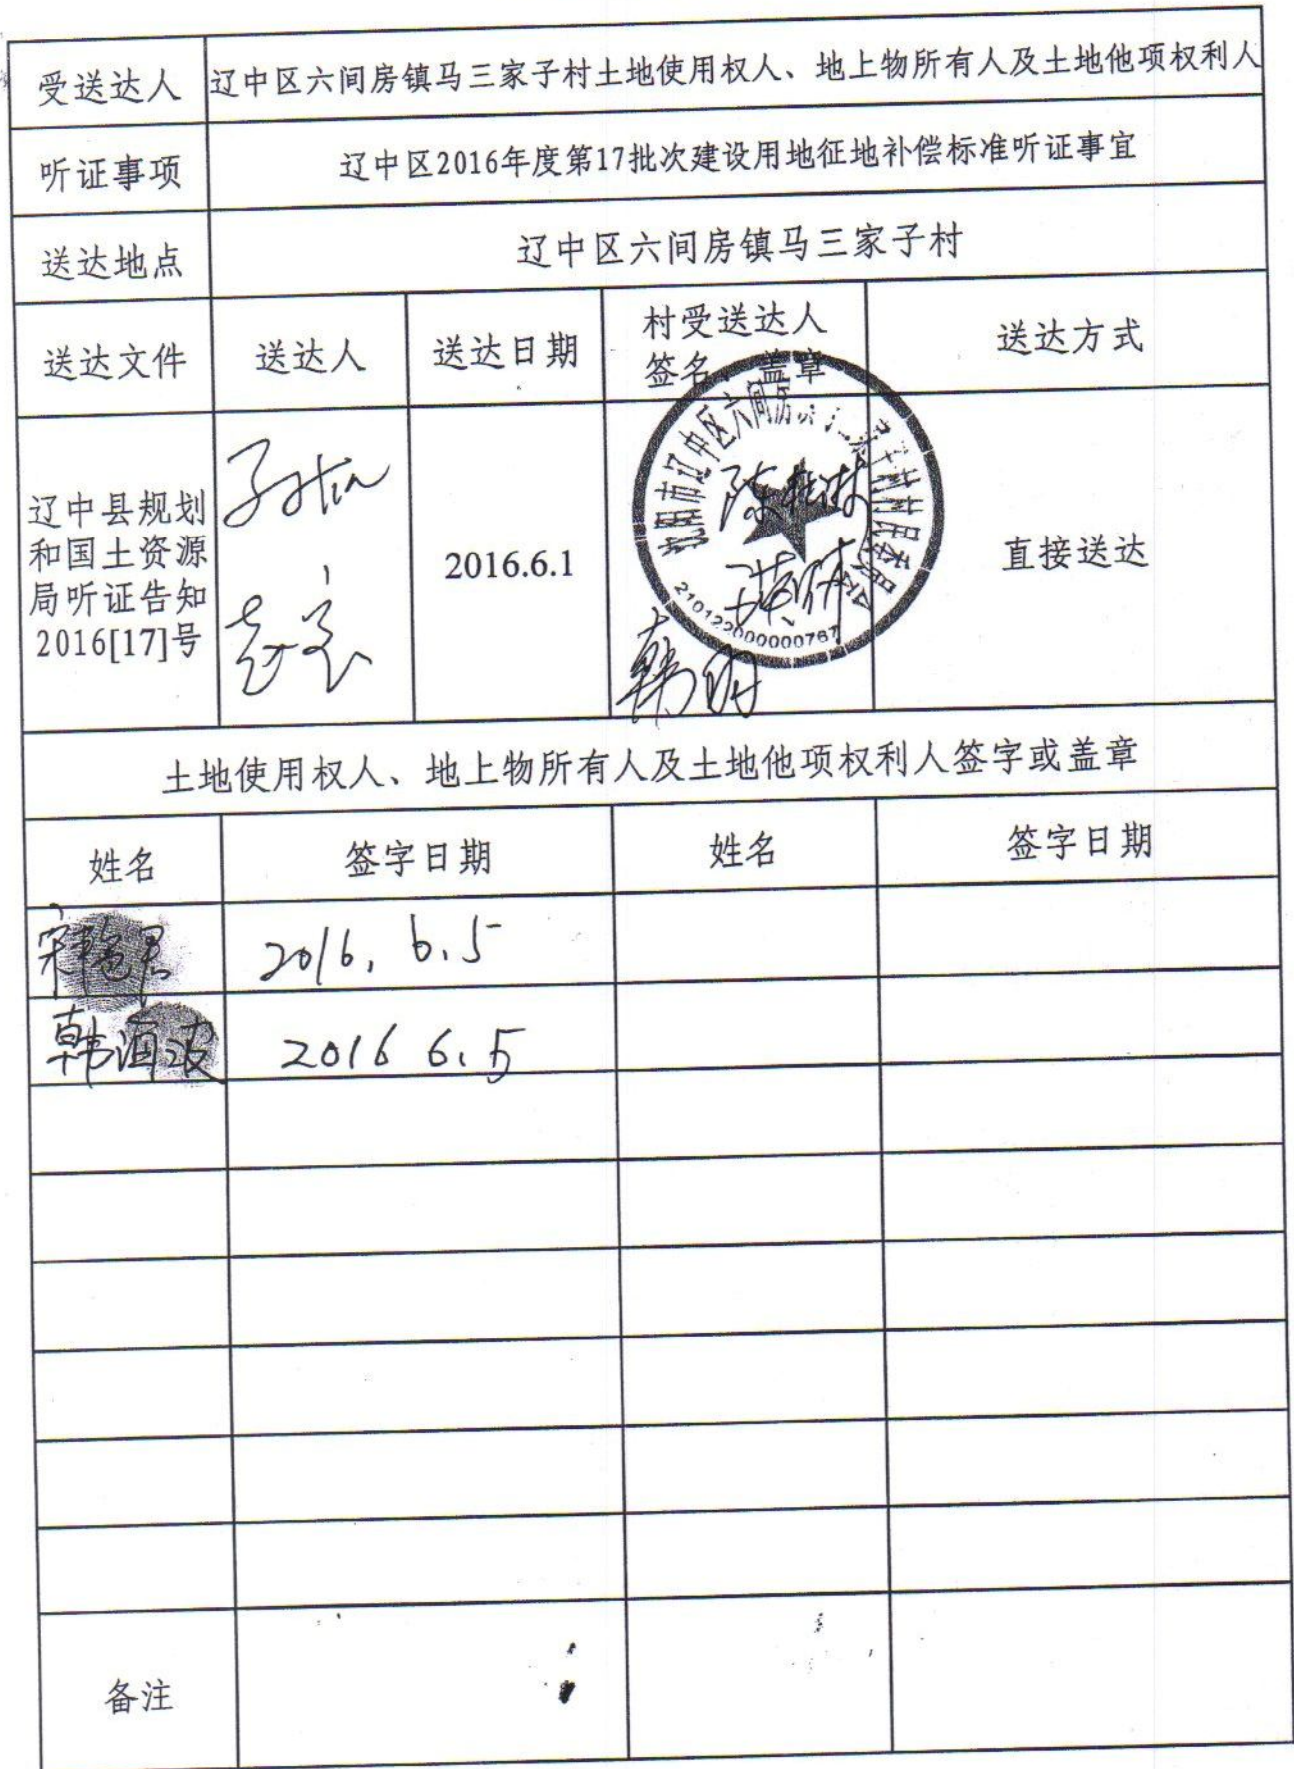 受送达人 辽中区六间房镇马三家子村土地使用权人、地上物所有人及土地他项权利人
听证事项 辽中区2016年度第17批次建设用地征地补偿标准听证事宜
送达地点 辽中区六间房镇马三家子村
送达文件 送达人 送达日期 村受送达人签名、盖章 送达方式
辽中县规划
和国土资源
局听证告知
2016[17]号
2016.6.1
210122000000767
韩
直接送达
土地使用权人、地上物所有人及土地他项权利人签字或盖章
姓名 签字日期 姓名 签字日期
宋艳君 2016. 6.5
韩海波 2016 6.5
备注